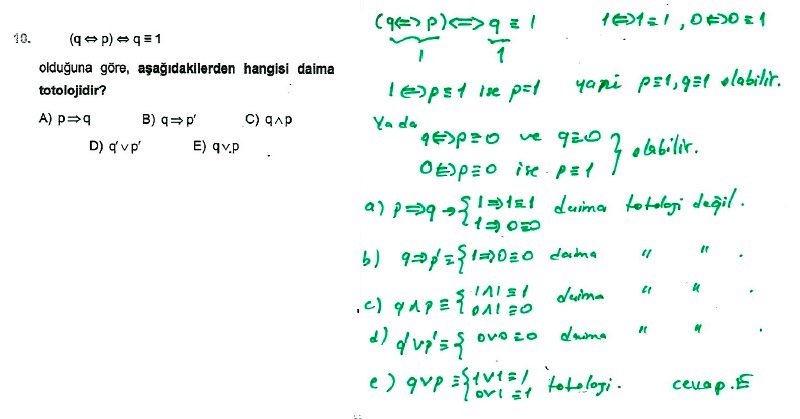 10. (q ⇔ p) ⇔ q ≡ 1
olduğuna göre, aşağıdakilerden hangisi daima
totolojidir?
A) p ⇒ q B) q ⇒ p' C) q ∧ p
D) q' ∨ p' E) q ∨ p
(q ⇔ p) ⇔ q ≡ 1 1 ⇔ 1 ≡ 1 , 0 ⇔ 0 ≡ 1
1 1
1 ⇔ p ≡ 1 ise p=1 yani p≡1, q≡1 olabilir.
Ya da
q ⇔ p ≡ 0 ve q ≡ 0
0 ⇔ p ≡ 0 ise p ≡ 1 } olabilir.
a) p ⇒ q → { 1 ⇒ 1 ≡ 1 daima totoloji değil.
1 ⇒ 0 ≡ 0
b) q ⇒ p' ≡ { 1 ⇒ 0 ≡ 0 daima " " .
c) q ∧ p ≡ { 1 ∧ 1 ≡ 1 daima " " .
0 ∧ 1 ≡ 0
d) q' ∨ p' ≡ { 0 ∨ 0 ≡ 0 daima " " .
e) q ∨ p ≡ { 1 ∨ 1 ≡ 1 totoloji. cevap. E
0 ∨ 1 ≡ 1